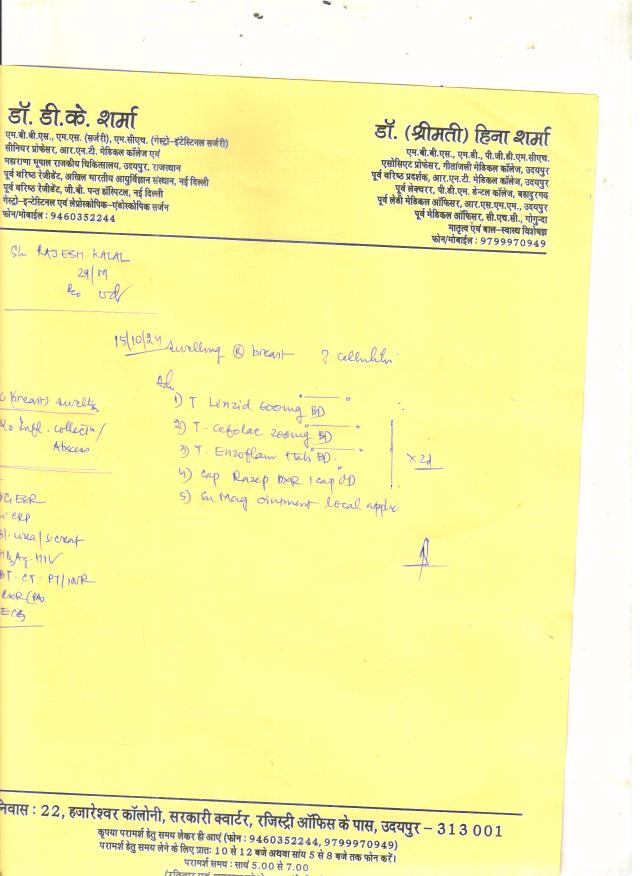 डॉ. डी.के. शर्मा
एम.बी.बी.एस., एम.एस. (सर्जरी), एम.सीएच. (गेस्ट्रो-इंटेस्टिनल सर्जरी)
सीनियर प्रोफेसर, आर.एन.टी. मेडिकल कॉलेज एवं
महाराणा भूपाल राजकीय चिकित्सालय, उदयपुर, राजस्थान
पूर्व वरिष्ठ रेजीडेंट, अखिल भारतीय आयुर्विज्ञान संस्थान, नई दिल्ली
पूर्व वरिष्ठ रेजीडेंट, जी.बी. पन्त हॉस्पिटल, नई दिल्ली
गेस्ट्रो-इन्टेस्टिनल एवं लेप्रोस्कोपिक-एंडोस्कोपिक सर्जन
फोन/मोबाईल : 9460352244
डॉ. (श्रीमती) हिना शर्मा
एम.बी.बी.एस., एम.डी., पी.जी.डी.एम.सीएच.
एसोसिएट प्रोफेसर, गीतांजली मेडिकल कॉलेज, उदयपुर
पूर्व वरिष्ठ प्रदर्शक, आर.एन.टी. मेडिकल कॉलेज, उदयपुर
पूर्व लेक्चरर, पी.डी.एम. डेन्टल कॉलेज, बहादुरगढ़
पूर्व लेडी मेडिकल ऑफिसर, आर.एस.एम.एम., उदयपुर
पूर्व मेडिकल ऑफिसर, सी.एच.सी., गोगुन्दा
मातृत्व एवं बाल-स्वास्थ्य विशेषज्ञ
फोन/मोबाईल : 9799970949
Sh RAJESH KALAL
29/M
15/10/24 swelling R breast ? cellulitis
Adv
1) T Linzid 600mg BD
2) T. Cefolac 200mg BD
3) T. Enzoflam 1 tab BD.
4) Cap Razep DSR 1 cap OD
5) Sn Mag ointment local applic
(breast) swellg
Infl. collectn/
Abscess
ESR
CRP
urea/s. creat
HIV
BT-CT-PT/INR
CXR (PA)
ECG
निवास : 22, हजारेश्वर कॉलोनी, सरकारी क्वार्टर, रजिस्ट्री ऑफिस के पास, उदयपुर – 313 001
कृपया परामर्श हेतु समय लेकर ही आएं (फोन : 9460352244, 9799970949)
परामर्श हेतु समय लेने के लिए प्रातः 10 से 12 बजे अथवा सांय 5 से 8 बजे तक फोन करें।
परामर्श समय : सायं 5.00 से 7.00